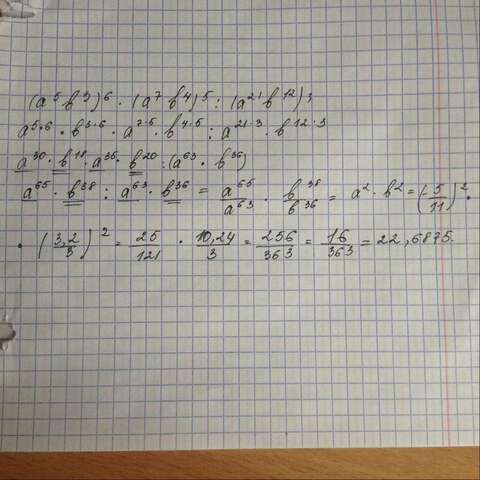 (a⁵b³)⁶ · (a⁷b⁴)⁵ : (a²¹b¹²)³
a⁵·⁶ · b³·⁶ · a⁷·⁵ · b⁴·⁵ : a²¹·³ · b¹²·³
a³⁰ · b¹⁸ · a³⁵ · b²⁰ : (a⁶³ · b³⁶)
a⁶⁵ · b³⁸ : a⁶³ · b³⁶ = a⁶⁵/a⁶³ · b³⁸/b³⁶ = a² · b² = (-5/11)² ·
· (3,2/3)² = 25/121 · 10,24/3 = 256/363 = 16/363 = 22,6875.